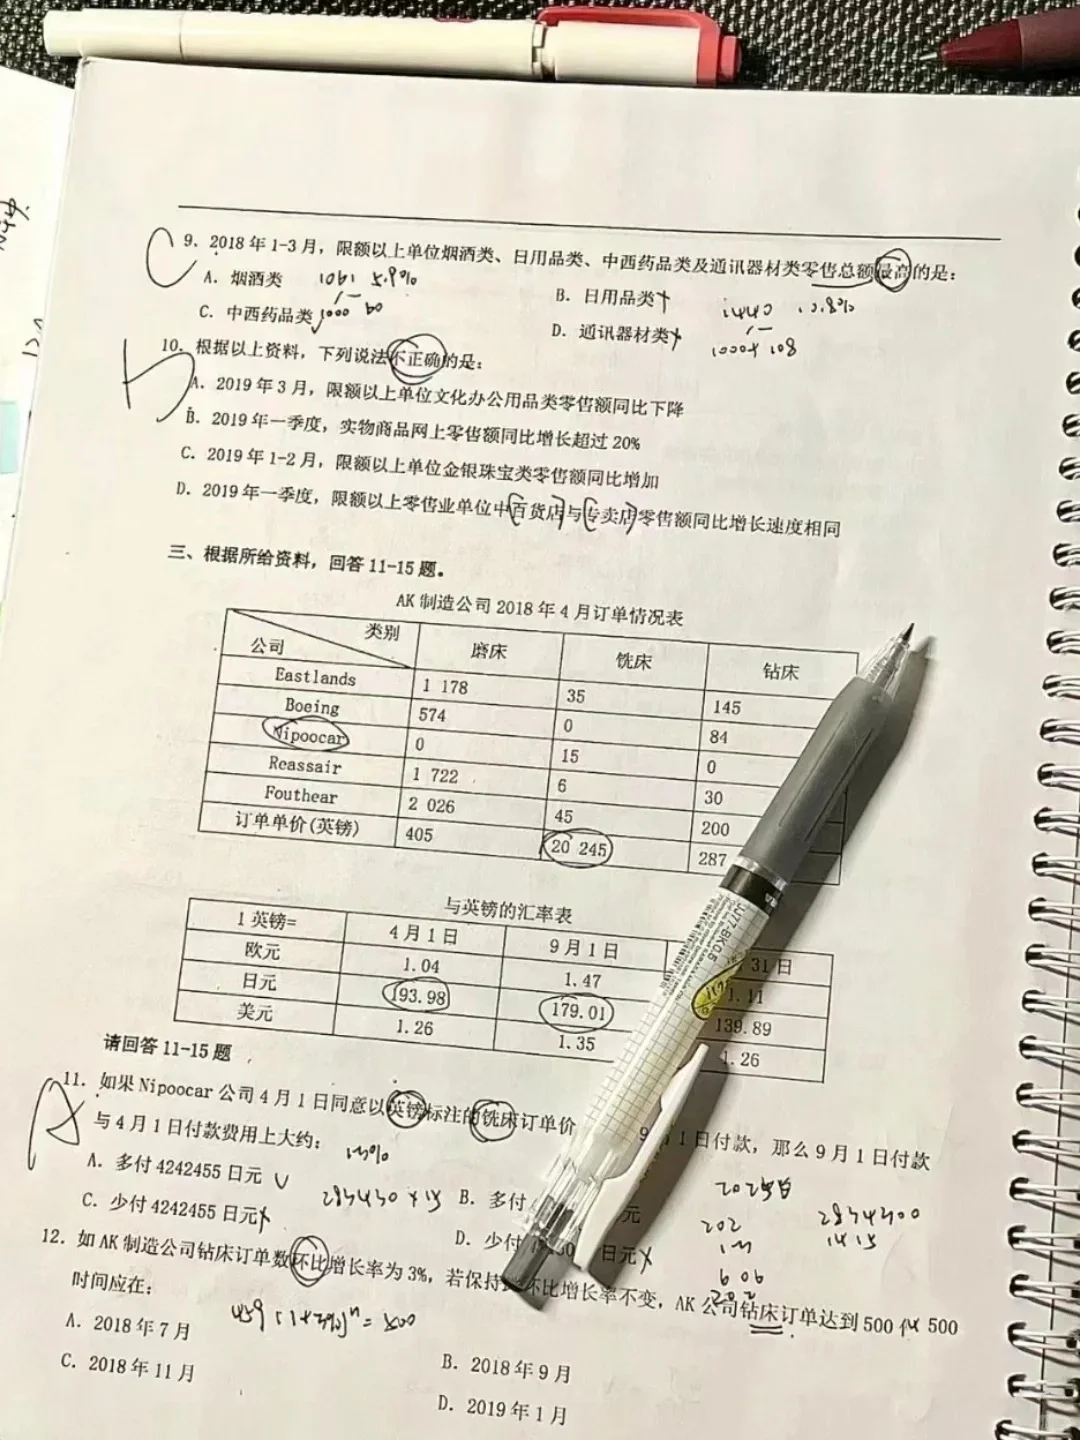 9. 2018年1-3月，限额以上单位烟酒类、日用品类、中西药品类及通讯器材类零售总额最高的是：
A. 烟酒类 1061 5.9%
B. 日用品类
C. 中西药品类
D. 通讯器材类
10. 根据以上资料，下列说法不正确的是：
A. 2019年3月，限额以上单位文化办公用品类零售额同比下降
B. 2019年一季度，实物商品网上零售额同比增长超过20%
C. 2019年1-2月，限额以上单位金银珠宝类零售额同比增加
D. 2019年一季度，限额以上零售业单位中百货店与专卖店零售额同比增长速度相同
三、根据所给资料，回答11-15题。
AK制造公司2018年4月订单情况表
公司 类别 磨床 铣床 钻床
Eastlands 1 178 35 145
Boeing 574 0 84
Nipoocar 0 15 0
Reassair 1 722 6 30
Fouthear 2 026 45 200
订单单价(英镑) 405 20 245 287
与英镑的汇率表
1英镑= 4月1日 9月1日 31日
欧元 1.04 1.47 1.11
日元 193.98 179.01 139.89
美元 1.26 1.35 1.26
UJ77-BK0.5
请回答11-15题
11. 如果Nipoocar公司4月1日同意以英镑标注的铣床订单价 9月1日付款，那么9月1日付款
与4月1日付款费用上大约：
A. 多付4242455日元
B. 多付 元
C. 少付4242455日元
D. 少付 日元
12. 如AK制造公司钻床订单数环比增长率为3%，若保持 环比增长率不变，AK公司钻床订单达到500件 500
时间应在：
459(1+3%)ⁿ=500
A. 2018年7月
B. 2018年9月
C. 2018年11月
D. 2019年1月